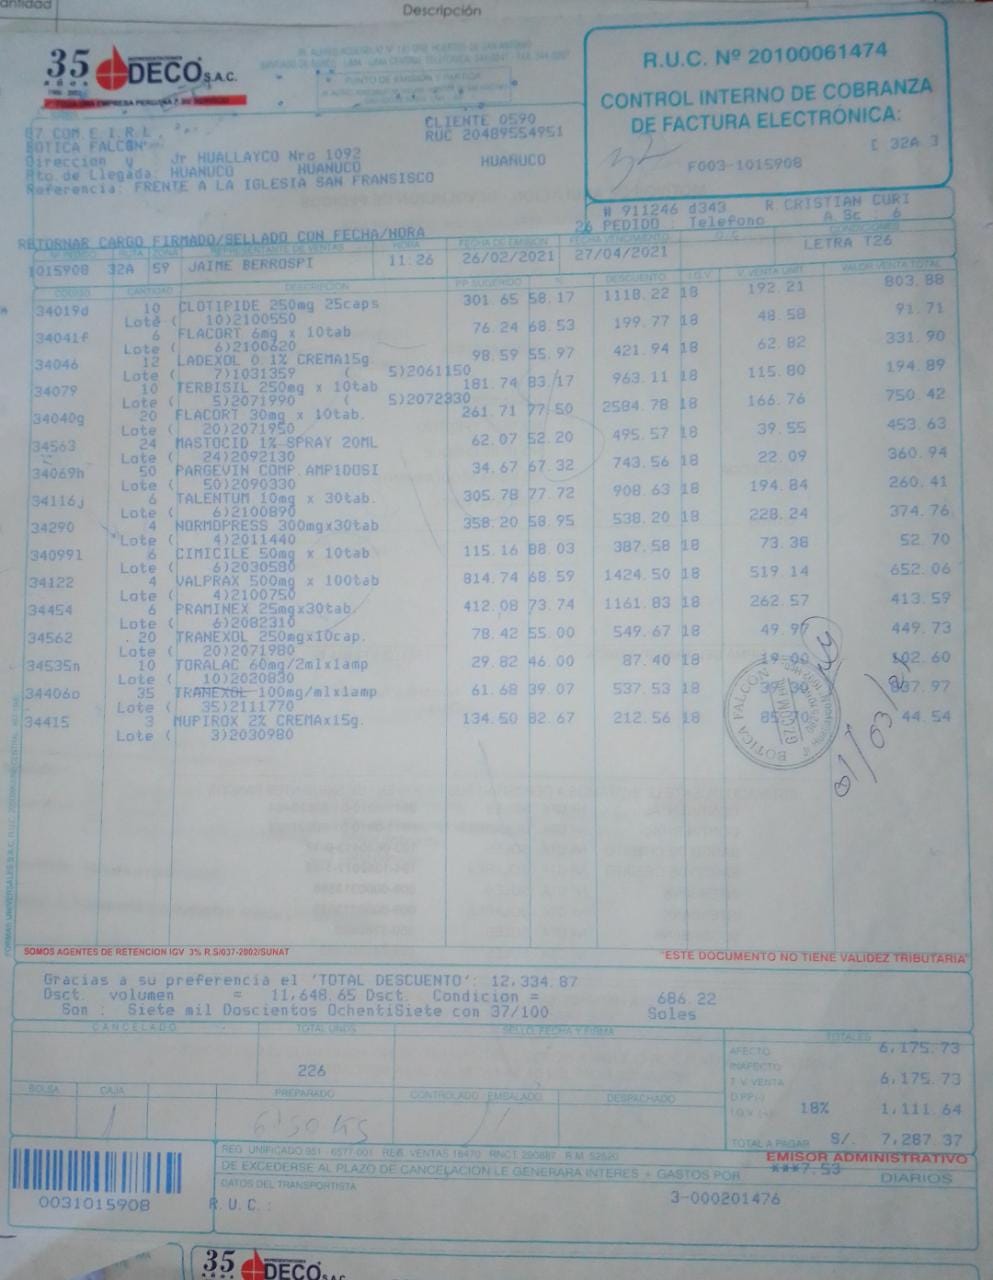 Descripción
35 DECO S.A.C.
AÑOS
TODA UNA EMPRESA PERUANA A SU SERVICIO
PUNTO DE EMISIÓN Y PARTIDA
R.U.C. Nº 20100061474
CONTROL INTERNO DE COBRANZA
DE FACTURA ELECTRÓNICA:
[ 32A ]
F003-1015908
CLIENTE 0590
RUC 20489554951
BOTICA FALCON
Direccion y Jr HUALLAYCO Nro 1092 HUANUCO
Pto. de Llegada: HUANUCO HUANUCO
Referencia: FRENTE A LA IGLESIA SAN FRANSISCO
# 911246 d343 R.CRISTIAN CURI
26 PEDIDO : Telefono A.Sc : 6
RETORNAR CARGO FIRMADO/SELLADO CON FECHA/HORA
Nº PEDIDO RUTA ZONA REPRESENTANTE DE VENTAS HORA FECHA DE EMISION FECHA VENCIMIENTO O/C CONDICIONES
1015908 32A 59 JAIME BERROSPI 11:26 26/02/2021 27/04/2021 LETRA T26
CODIGO CANTIDAD DESCRIPCION P.P. SUGERIDO % DESCUENTO I.G.V. V. VENTA UNIT VALOR VENTA TOTAL
34019d 10 CLOTIPIDE 250mg 25caps 301.65 58.17 1118.22 18 192.21 803.88
Lote ( 10)2100550
34041f 6 FLACORT 6mg x 10tab 76.24 68.53 199.77 18 48.58 91.71
Lote ( 6)2100620
34046 12 LADEXOL 0.1% CREMA15g. 98.59 55.97 421.94 18 62.82 331.90
Lote ( 7)1031359 ( 5)2061150
34079 10 TERBISIL 250mg x 10tab 181.74 83.17 963.11 18 115.80 194.89
Lote ( 5)2071990 ( 5)2072330
34040g 20 FLACORT 30mg x 10tab. 261.71 77.50 2584.78 18 166.76 750.42
Lote ( 20)2071950
34563 24 MASTOCID 1% SPRAY 20ML 62.07 52.20 495.57 18 39.55 453.63
Lote ( 24)2092130
34069h 50 PARGEVIN COMP.AMP1DOSI 34.67 67.32 743.56 18 22.09 360.94
Lote ( 50)2090330
34116j 6 TALENTUM 10mg x 30tab. 305.78 77.72 908.63 18 194.84 260.41
Lote ( 6)2100890
34290 4 NORMOPRESS 300mgx30tab 358.20 58.95 538.20 18 228.24 374.76
Lote ( 4)2011440
340991 6 CIMICILE 50mg x 10tab 115.16 88.03 387.58 18 73.38 52.70
Lote ( 6)2030580
34122 4 VALPRAX 500mg x 100tab 814.74 68.59 1424.50 18 519.14 652.06
Lote ( 4)2100750
34454 6 PRAMINEX 25mgx30tab. 412.08 73.74 1161.83 18 262.57 413.59
Lote ( 6)2082310
34562 20 TRANEXOL 250mgx10cap. 78.42 55.00 549.67 18 49.97 449.73
Lote ( 20)2071980
34535n 10 TORALAC 60mg/2mlx1amp 29.82 46.00 87.40 18 19.00 102.60
Lote ( 10)2020830
34406o 35 TRANEXOL 100mg/mlx1amp 61.68 39.07 537.53 18 39.30 837.97
Lote ( 35)2111770
34415 3 MUPIROX 2% CREMAx15g. 134.50 82.67 212.56 18 44.54
Lote ( 3)2030980
BOTICA FALCON
01/03/21
SOMOS AGENTES DE RETENCION IGV 3% R.S/037-2002/SUNAT
"ESTE DOCUMENTO NO TIENE VALIDEZ TRIBUTARIA"
Gracias a su preferencia el 'TOTAL DESCUENTO': 12,334.87
Dsct. volumen = 11,648.65 Dsct. Condicion = 686.22
Son : Siete mil Doscientos OchentiSiete con 37/100 Soles
CANCELADO TOTAL UNDS SELLO, FECHA Y FIRMA TOTALES
226
AFECTO 6,175.73
INAFECTO
T.V. VENTA 6,175.73
I.G.V. 18% 1,111.64
TOTAL A PAGAR S/. 7,287.37
BOLSA CAJA PREPARADO CONTROLADO EMBALADO DESPACHADO
EMISOR ADMINISTRATIVO
DE EXCEDERSE AL PLAZO DE CANCELACION LE GENERARA INTERES + GASTOS POR ***7.53 DIARIOS
DATOS DEL TRANSPORTISTA
R.U.C.:
3-000201476
0031015908
35 DECO S.A.C.